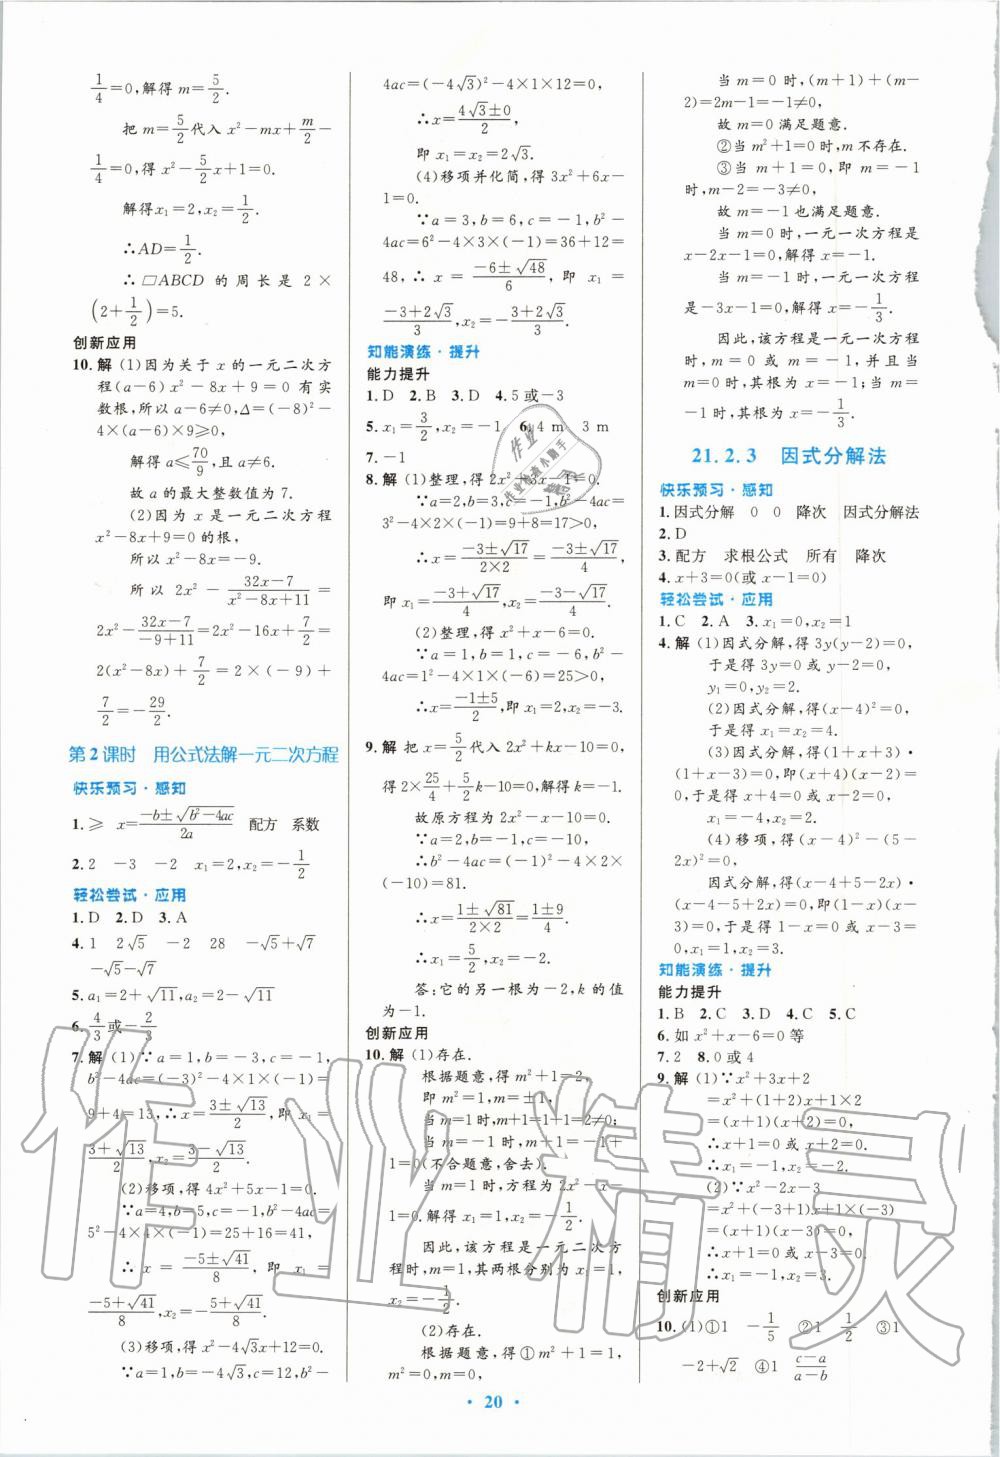 1/4=0,解得 m=5/2.
把 m=5/2代入 x²-mx+m/2-
1/4=0,得 x²-5/2x+1=0.
解得x₁=2,x₂=1/2.
∴AD=1/2.
∴□ABCD 的周长是 2×
(2+1/2)=5.
创新应用
10.解 (1)因为关于 x 的一元二次方
程(a-6)x²-8x+9=0 有实
数根,所以 a-6≠0,Δ=(-8)²-
4×(a-6)×9≥0,
解得 a≤70/9,且 a≠6.
故 a 的最大整数值为 7.
(2)因为 x 是一元二次方程
x²-8x+9=0 的根,
所以 x²-8x=-9.
所以 2x²-(32x-7)/(x²-8x+11)=
2x²-(32x-7)/(-9+11)=2x²-16x+7/2=
2(x²-8x)+7/2=2×(-9)+
7/2=-29/2.
第2课时 用公式法解一元二次方程
快乐预习·感知
1.≥ x=(-b±√(b²-4ac))/2a 配方 系数
2.2 -3 -2 x₁=2,x₂=-1/2
轻松尝试·应用
1.D 2.D 3.A
4.1 2√5 -2 28 -√5+√7
-√5-√7
5.a₁=2+√11,a₂=2-√11
6.4/3或-2/3
7.解 (1)∵a=1,b=-3,c=-1,
b²-4ac=(-3)²-4×1×(-1)=
9+4=13,∴x=(3±√13)/2,即 x₁=
(3+√13)/2,x₂=(3-√13)/2.
(2)移项,得 4x²+5x-1=0.
∵a=4,b=5,c=-1,b²-4ac=
5²-4×4×(-1)=25+16=41,
∴x=(-5±√41)/8,即 x₁=
(-5+√41)/8,x₂=(-5-√41)/8.
(3)移项,得 x²-4√3x+12=0.
∵a=1,b=-4√3,c=12,b²-
4ac=(-4√3)²-4×1×12=0,
∴x=(4√3±0)/2,
即 x₁=x₂=2√3.
(4)移项并化简,得 3x²+6x-
1=0.
∵a=3,b=6,c=-1,b²-
4ac=6²-4×3×(-1)=36+12=
48,∴x=(-6±√48)/6,即 x₁=
(-3+2√3)/3,x₂=-(3+2√3)/3.
知能演练·提升
能力提升
1.D 2.B 3.D 4.5 或-3
5.x₁=3/2,x₂=-1 6.4 m 3 m
7.-1
8.解 (1)整理,得 2x²+3x-1=0.
∵a=2,b=3,c=-1,b²-4ac=
3²-4×2×(-1)=9+8=17>0,
∴x=(-3±√17)/(2×2)=(-3±√17)/4,
即 x₁=(-3+√17)/4,x₂=(-3-√17)/4.
(2)整理,得 x²+x-6=0.
∵a=1,b=1,c=-6,b²-
4ac=1²-4×1×(-6)=25>0,
∴x=(-1±5)/2,即 x₁=2,x₂=-3.
9.解 把 x=5/2代入 2x²+kx-10=0,
得2×25/4+5/2k-10=0,解得k=-1.
故原方程为 2x²-x-10=0.
∵a=2,b=-1,c=-10,
∴b²-4ac=(-1)²-4×2×
(-10)=81.
∴x=(1±√81)/(2×2)=(1±9)/4.
∴x₁=5/2,x₂=-2.
答:它的另一根为-2,k 的值
为-1.
创新应用
10.解 (1)存在.
根据题意,得 m²+1=2,
即 m²=1,m=±1,
当 m=1时,m+1=1+1=2≠0;
当 m=-1 时,m+1=-1+
1=0(不合题意,舍去).
当 m=1 时,方程为 2x²-x-
1=0.解得 x₁=1,x₂=-1/2.
因此,该方程是一元二次方
程时,m=1,其两根分别为 x₁=1,
x₂=-1/2.
(2)存在.
根据题意,得①m²+1=1,
m²=0,m=0,
当 m=0 时,(m+1)+(m-
2)=2m-1=-1≠0,
故 m=0 满足题意.
②当 m²+1=0 时,m不存在.
③当 m+1=0,即 m=-1
时,m-2=-3≠0,
故 m=-1 也满足题意.
当 m=0 时,一元一次方程是
x-2x-1=0,解得 x=-1.
当 m=-1 时,一元一次方程
是-3x-1=0,解得 x=-1/3.
因此,该方程是一元一次方
程时,m=0 或 m=-1,并且当
m=0 时,其根为 x=-1;当 m=
-1时,其根为 x=-1/3.
21.2.3 因式分解法
快乐预习·感知
1.因式分解 0 0 降次 因式分解法
2.D
3.配方 求根公式 所有 降次
4.x+3=0(或 x-1=0)
轻松尝试·应用
1.C 2.A 3.x₁=0,x₂=1
4.解 (1)因式分解,得 3y(y-2)=0.
于是得 3y=0 或 y-2=0,
y₁=0,y₂=2.
(2)因式分解,得(x-4)²=0,
于是得 x₁=x₂=4.
(3)因式分解,得(1+x+3)·
(1-x-3)=0,即(x+4)(x+2)=
0,于是得 x+4=0 或 x+2=0,
x₁=-4,x₂=-2.
(4)移项,得(x-4)²-(5-
2x)²=0,
因式分解,得(x-4+5-2x)·
(x-4-5+2x)=0,即(1-x)(x-
3)=0,于是得 1-x=0 或 x-3=
0,x₁=1,x₂=3.
知能演练·提升
能力提升
1.B 2.C 3.D 4.C 5.C
6.如 x²+x-6=0 等
7.2 8.0 或 4
9.解 (1)∵x²+3x+2
=x²+(1+2)x+1×2
=(x+1)(x+2)=0,
∴x+1=0 或 x+2=0.
∴x₁=-1,x₂=-2.
(2)∵x²-2x-3
=x²+(1-3)x+1×(-3)
=(x+1)(x-3)=0,
∴x+1=0 或 x-3=0.
∴x₁=-1,x₂=3.
创新应用
10.(1)①1 -1/5 ②1 1/2 ③1
-2+√2 ④1 (c-a)/(a-b)
·20·
作业精灵